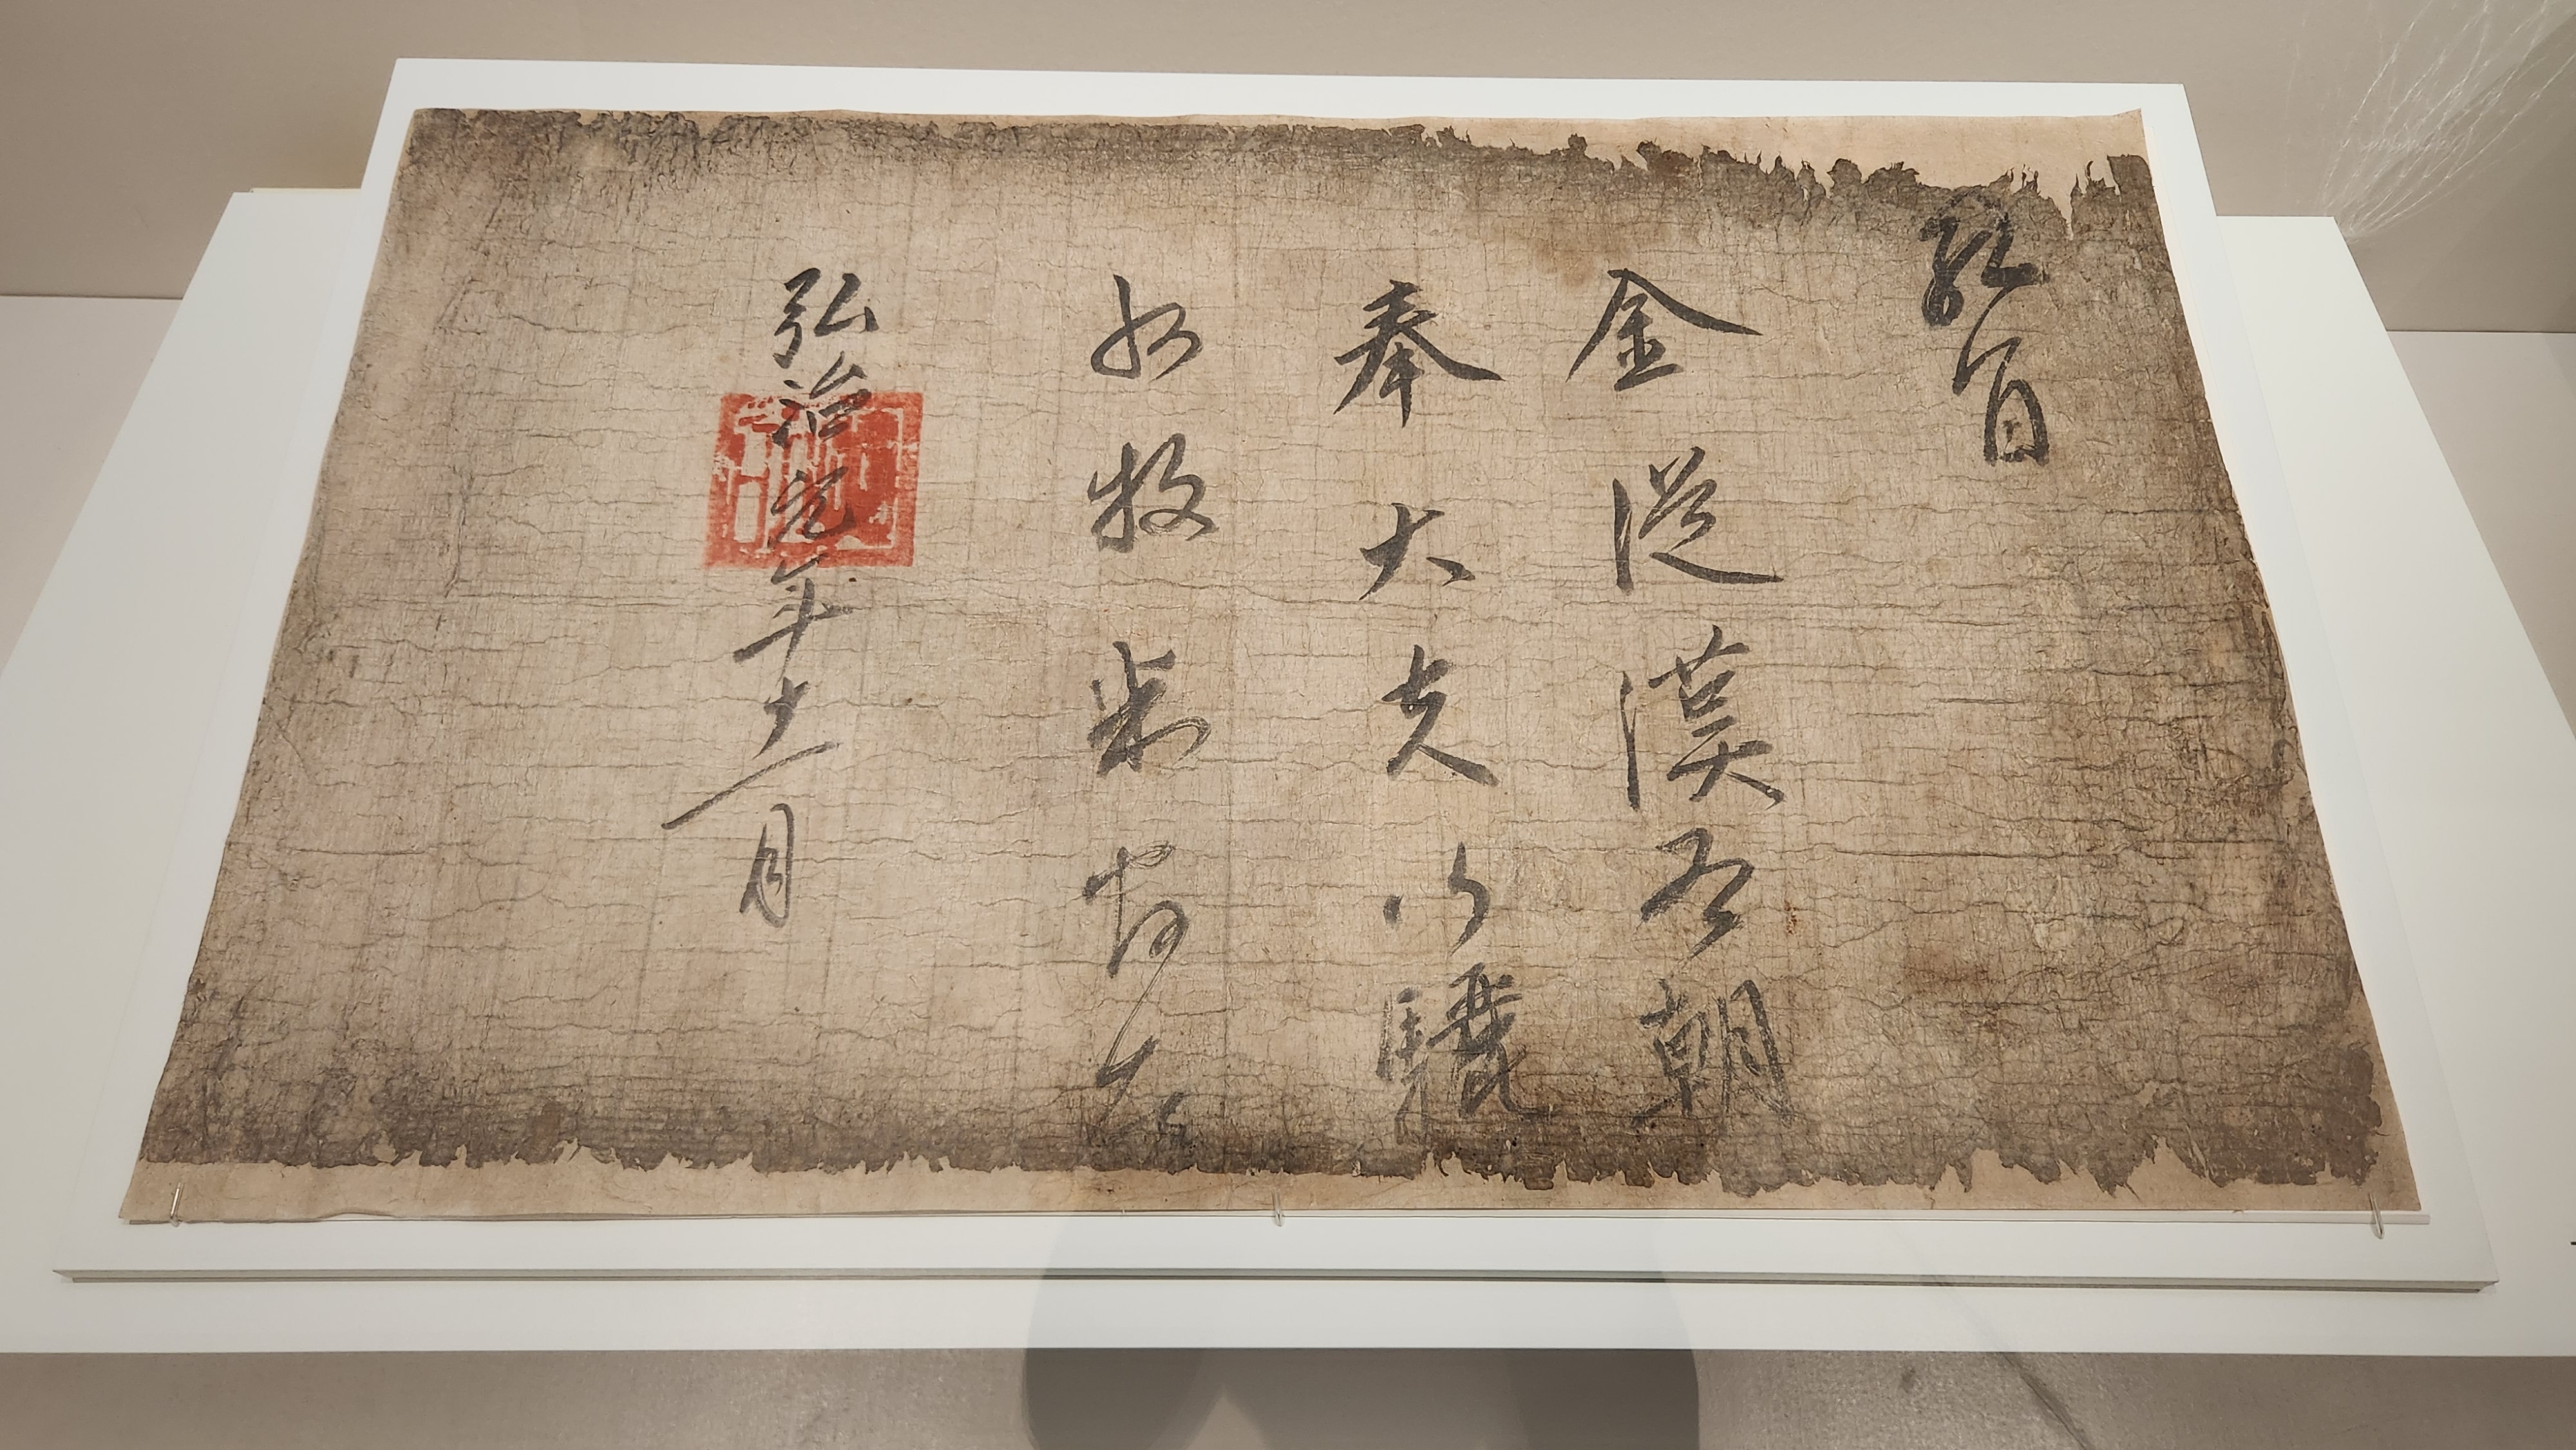 教旨
金從漢爲朝
奉大夫行驪
州牧判官者
弘治元年十二月